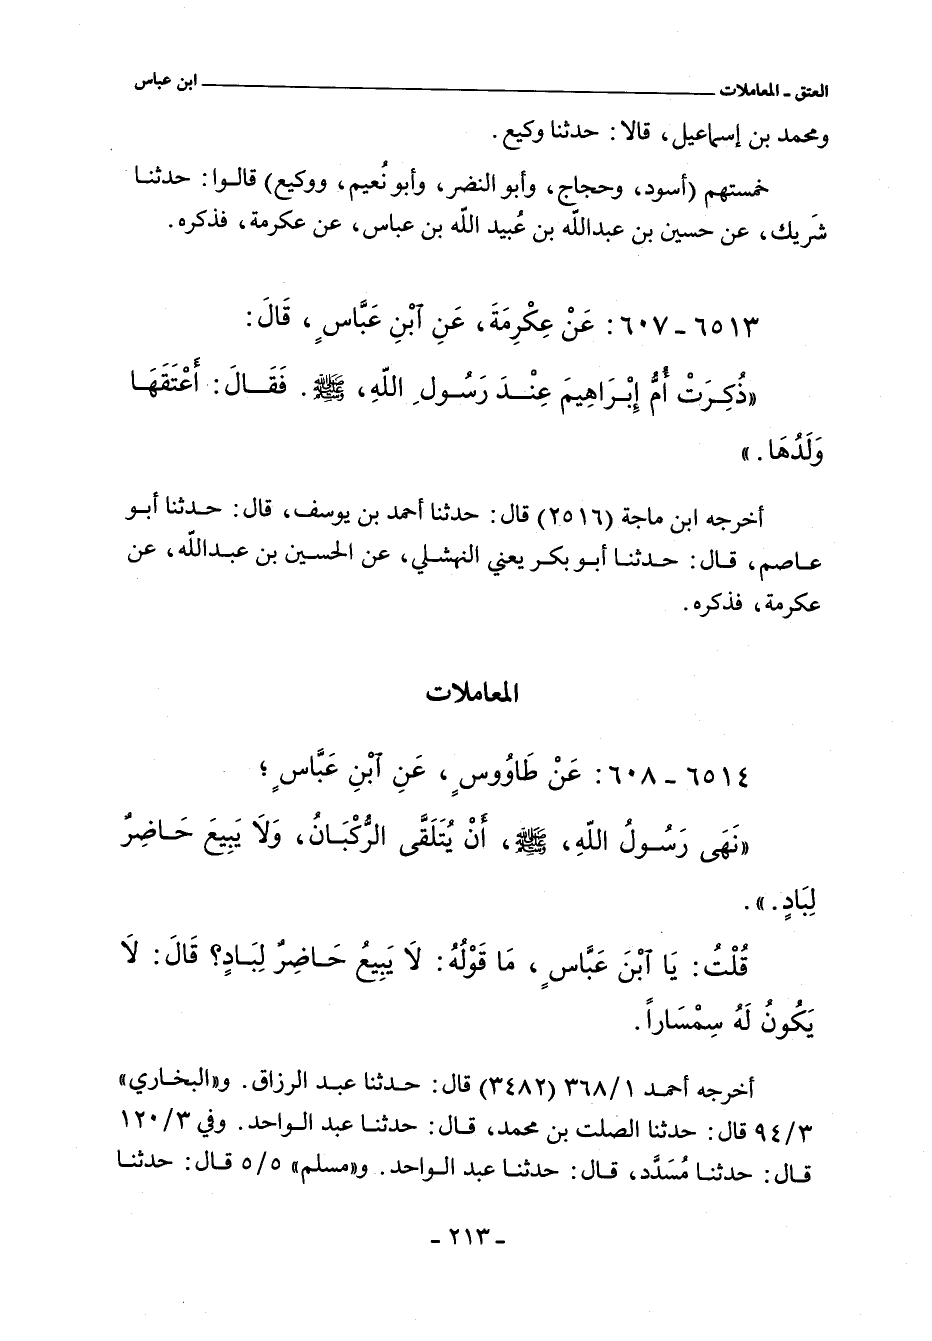 العتق ـ المعاملات ابن عباس
ومحمد بن إسماعيل، قالا: حدثنا وكيع.
خمستهم (أسود، وحجاج، وأبو النضر، وأبو نُعيم، ووكيع) قالوا: حدثنا
شَريك، عن حسين بن عبدالله بن عُبيد الله بن عباس، عن عكرمة، فذكره.
٦٥١٣ ـ ٦٠٧: عَنْ عِكْرِمَةَ، عَنِ ٱبْنِ عَبَّاسٍ، قَالَ:
«ذُكِرَتْ أُمُّ إِبْرَاهِيمَ عِنْدَ رَسُولِ اللّهِ، ﷺ. فَقَالَ: أَعْتَقَهَا
وَلَدُهَا.»
أخرجه ابن ماجة (٢٥١٦) قال: حدثنا أحمد بن يوسف، قال: حدثنا أبو
عاصم، قال: حدثنا أبو بكر يعني النهشلي، عن الحسين بن عبدالله، عن
عكرمة، فذكره.
المعاملات
٦٥١٤ ـ ٦٠٨: عَنْ طَاوُوسٍ، عَنِ ٱبْنِ عَبَّاسٍ؛
«نَهَى رَسُولُ اللّهِ، ﷺ، أَنْ يُتَلَقَّى الرُّكْبَانُ، وَلَا يَبِيعَ حَاضِرٌ
لِبَادٍ.».
قُلْتُ: يَا ٱبْنَ عَبَّاسٍ، مَا قَوْلُهُ: لَا يَبِيعُ حَاضِرٌ لِبَادٍ؟ قَالَ: لَا
يَكُونُ لَهُ سِمْسَاراً.
أخرجه أحمد ٣٦٨/١ (٣٤٨٢) قال: حدثنا عبد الرزاق. و«البخاري»
٩٤/٣ قال: حدثنا الصلت بن محمد، قال: حدثنا عبد الواحد. وفي ١٢٠/٣
قال: حدثنا مُسَدَّد، قال: حدثنا عبد الواحد. و«مسلم» ٥/٥ قال: حدثنا
ـ ٢١٣ ـ